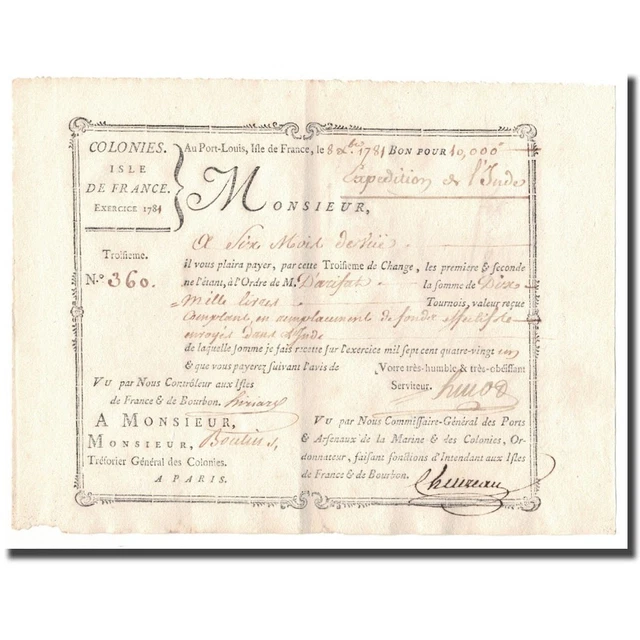 COLONIES.
ISLE
DE FRANCE.
EXERCICE 1781
Au Port-Louis, Isle de France, le 8 Xbre 1781 BON POUR 10,000
Expedition de l'Inde
MONSIEUR,
A Six Mois de vüe
Troisieme.
N.º 360.
il vous plaira payer, par cette Troisieme de Change, les premiere & seconde
ne l'étant, à l'Ordre de M. Darifat la somme de Dix
Mille livres Tournois, valeur reçue
comptant, en remplacement de fonds effectifs
envoyés dans l'Inde
de laquelle somme je fais recette sur l'exercice mil sept cent quatre-vingt un
& que vous payerez suivant l'avis de Votre très-humble & très-obéissant
Serviteur.
VU par Nous Contrôleur aux Isles
de France & de Bourbon.
A MONSIEUR,
MONSIEUR, Boutin,
Trésorier Général des Colonies.
A PARIS.
VU par Nous Commissaire-Général des Ports
& Arsenaux de la Marine & des Colonies, Or-
donnateur, faisant fonctions d'Intendant aux Isles
de France & de Bourbon.